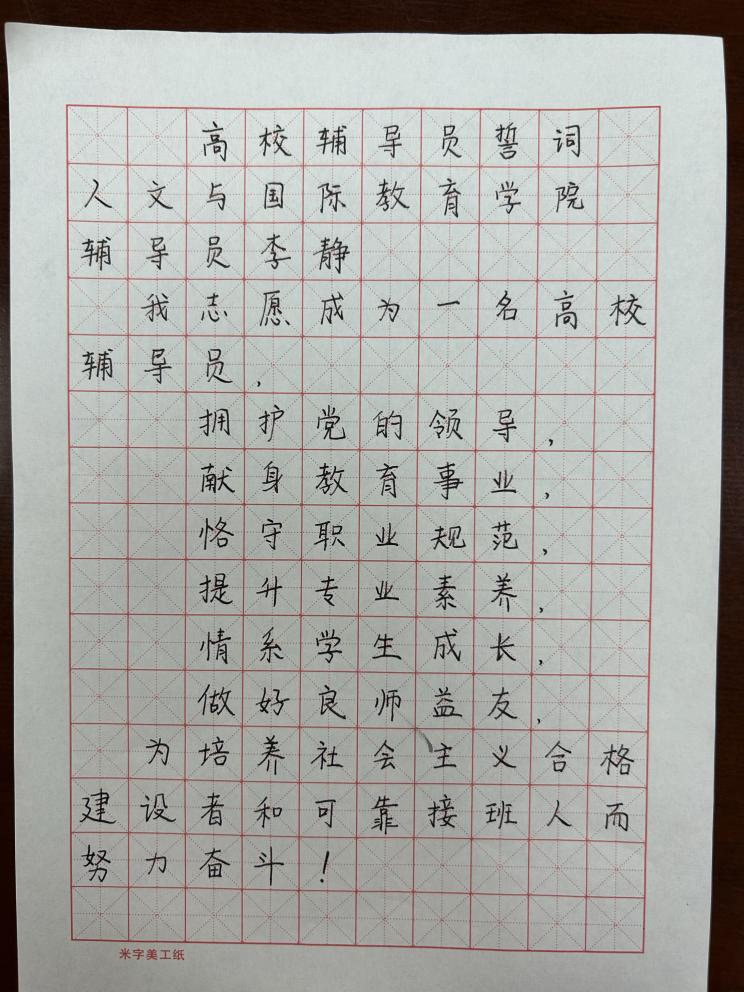 高校辅导员誓词
人文与国际教育学院
辅导员李静
我志愿成为一名高校
辅导员，
拥护党的领导，
献身教育事业，
恪守职业规范，
提升专业素养，
情系学生成长，
做好良师益友，
为培养社会主义合格
建设者和可靠接班人而
努力奋斗！
米字美工纸